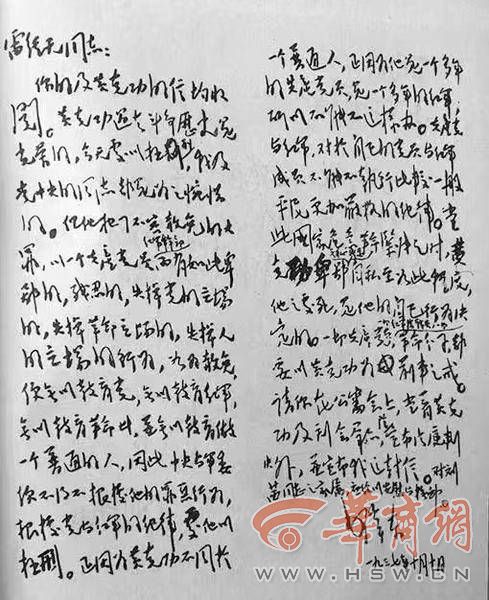 雷经天同志：
你的及黄克功的信均收
阅。黄克功过去斗争历史是
光荣的，今天处以极刑，我及
党中央的同志都是为之惋惜
的。但他犯了不容赦免的大
红军干部
罪，以一个共产党员而有如此卑
鄙的，残忍的，失掉党的立场
的，失掉革命立场的，失掉人
的立场的行为，如为赦免，
便无以教育党，无以教育红军，
无以教育革命者，并无以教育做
一个普通的人，因此中央与军委
便不得不根据他的罪恶行为，
根据党与红军的纪律，处他以
极刑。正因为黄克功不同于
一个普通人，正因为他是一个多年
的共产党员，是一个多年的红军，
所以不能不这样办。共产党
与红军，对于自己的党员与红军
成员不能不执行比较一般
平民更加严格的纪律。当
此国家危急革命紧张之时，黄
克功卑鄙自私至如此程度，
他之处死，是他的自己行为决
定的。一切共产党员，革命分子，都
要以黄克功为前车之戒。
请你在公审会上，当着黄克
功及到会群众，宣布法庭判
决外，并宣布我这封信。对刘
茜同志之家属，应给以安慰与抚恤。
毛泽东
一九三七年十月十日
华商网
WWW.HSW.CN